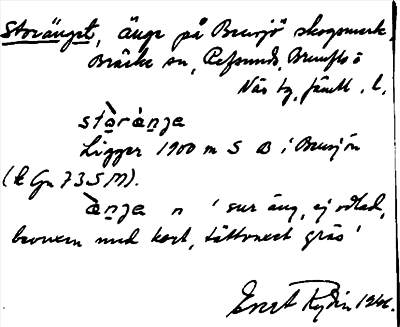 Storänget, änge på Bensjö skogsmark,
Bräcke sn, Refsunds, Brunflo o
Näs tg, Jämtl. l.
stòrànʒe
Ligger 1900 m S B i Bensjön
(k Gn 73 S M).
ànʒa n 'sur äng, ej odlad,
beväxen med kort, tättväxt gräs'
Evert Rydin 1946.